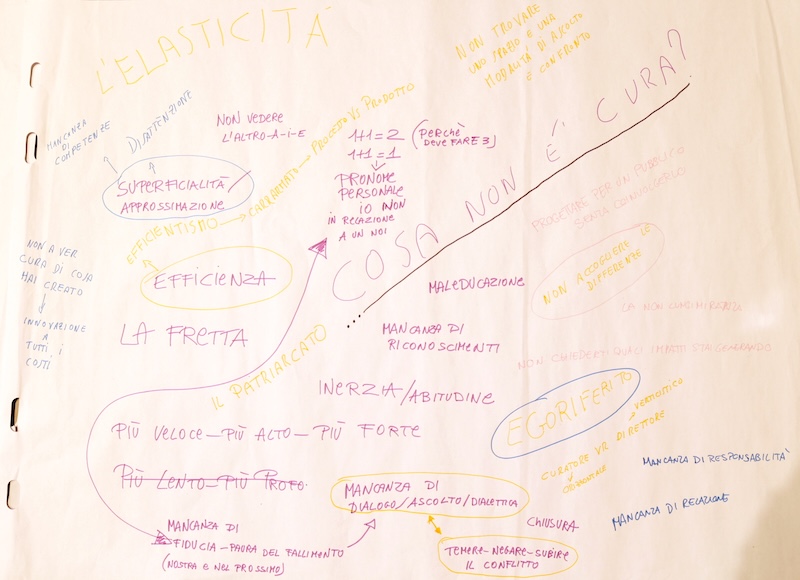 L'ELASTICITÀ
NON TROVARE
UNO SPAZIO E UNA
MODALITÀ DI ASCOLTO
E CONFRONTO
MANCANZA
DI
COMPETENZE
DISATTENZIONE
NON VEDERE
L'ALTRO-A-I-E
EFFICIENTISMO → CARRARMATO → PROCESSO VS PRODOTTO
1+1=2 (PERCHÈ
DEVE FARE 3)
1+1=1
PRONOME
PERSONALE
IO NON
IN RELAZIONE
A UN NOI
SUPERFICIALITÀ/
APPROSSIMAZIONE
COSA NON É CURA?
...
PROGETTARE PER UN PUBBLICO
SENZA COINVOLGERLO
NON AVER
CURA DI COSA
HAI CREATO
INNOVAZIONE
A
TUTTI I
COSTI
EFFICIENZA
MALEDUCAZIONE
NON ACCOGLIERE LE
DIFFERENZE
LA NON CONDIVISIONE
LA FRETTA
IL PATRIARCATO
MANCANZA DI
RICONOSCIMENTI
NON CHIEDERTI QUALI IMPATTI STAI GENERANDO
INERZIA/ABITUDINE
EGORIFERITO
VERTICISTICO
CURATORE VS DIRETTORE
PIÙ VELOCE – PIÙ ALTO – PIÙ FORTE
PIÙ LENTO – PIÙ
MANCANZA DI
DIALOGO/ASCOLTO/DIALETTICA
MANCANZA DI RESPONSABILITÀ
MANCANZA DI RELAZIONE
CHIUSURA
MANCANZA DI
FIDUCIA – PAURA DEL FALLIMENTO
(NOSTRA E NEL PROSSIMO)
TEMERE-NEGARE-SUBIRE
IL CONFLITTO